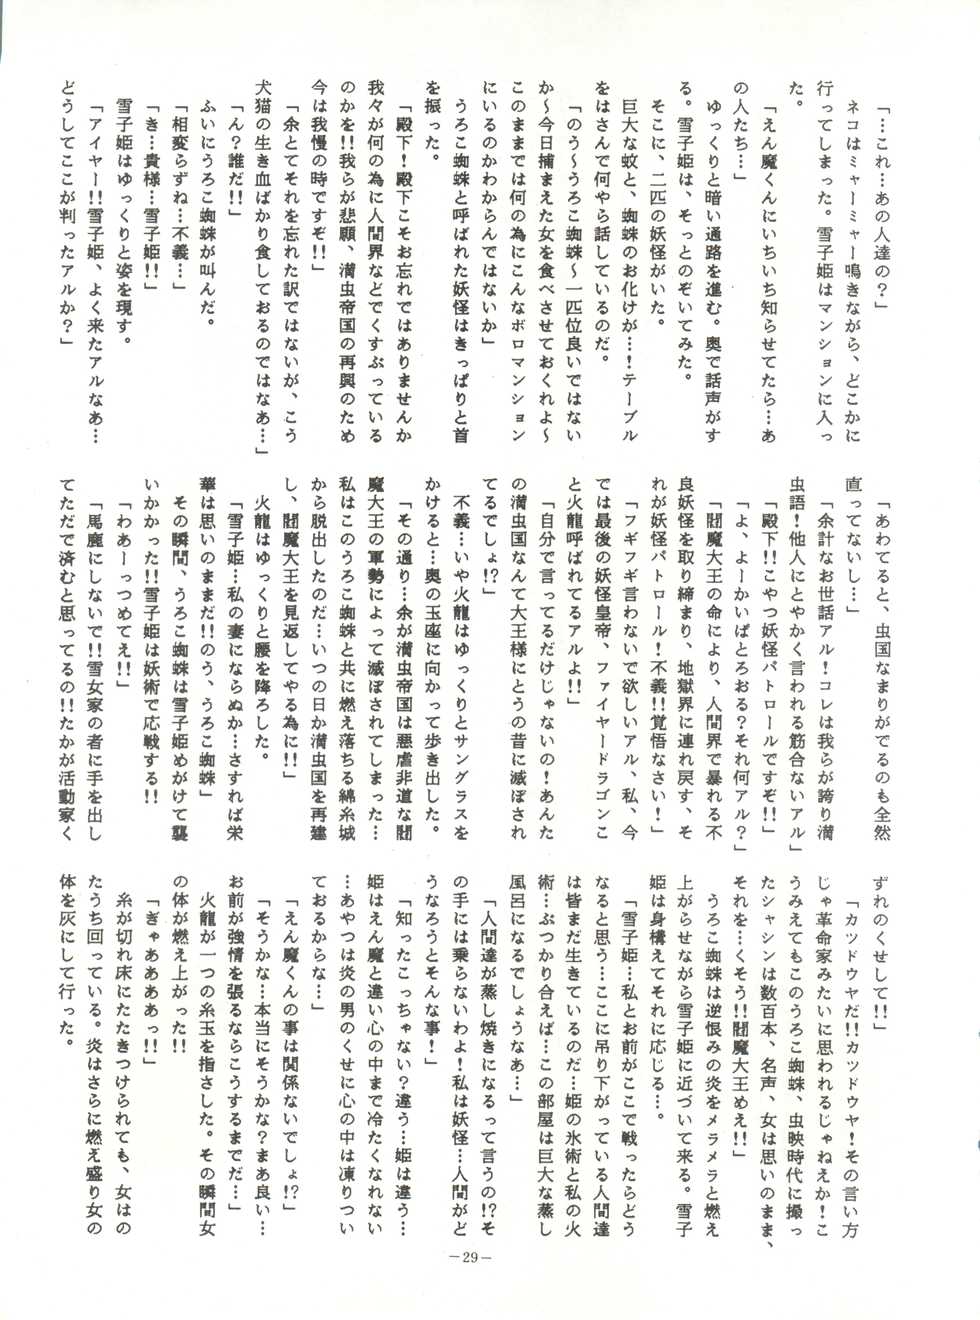 「…これ…あの人達の？」
ネコはミャーミャー鳴きながら、どこかに
行ってしまった。雪子姫はマンションに入っ
た。
「えん魔くんにいちいち知らせてたら…あ
の人たち…」
ゆっくりと暗い通路を進む。奥で話声がす
る。雪子姫は、そっとのぞいてみた。
そこに、二匹の妖怪がいた。
巨大な蚊と、蜘蛛のお化けが…！テーブル
をはさんで何やら話しているのだ。
「のう〜うろこ蜘蛛〜一匹位良いではない
か〜今日捕まえた女を食べさせておくれよ〜
このままでは何の為にこんなボロマンション
にいるのかわからんではないか」
うろこ蜘蛛と呼ばれた妖怪はきっぱりと首
を振った。
「殿下！殿下こそお忘れではありませんか
我々が何の為に人間界などでくすぶっている
のかを!!我らが悲願、満虫帝国の再興のため
今は我慢の時ですぞ!!」
「余とてそれを忘れた訳ではないが、こう
犬猫の生き血ばかり食しておるのではなぁ…」
「ん？誰だ!!」
ふいにうろこ蜘蛛が叫んだ。
「相変らずね…不義…」
「き…貴様…雪子姫!!」
雪子姫はゆっくりと姿を現す。
「アイヤー!!雪子姫、よく来たアルなあ…
どうしてここが判ったアルか？」
「あわてると、虫国なまりがでるのも全然
直ってないし…」
「余計なお世話アル！コレは我らが誇り満
虫語！他人にとやかく言われる筋合ないアル」
「殿下!!こやつ妖怪パトロールですぞ!!」
「よ、よーかいぱとろおる？それ何アル？」
「閻魔大王の命により、人間界で暴れる不
良妖怪を取り締まり、地獄界に連れ戻す、そ
れが妖怪パトロール！不義!!覚悟なさい！」
「フギフギ言わないで欲しいアル、私、今
では最後の妖怪皇帝、ファイヤードラゴンこ
と火龍呼ばれてるアルよ!!」
「自分で言ってるだけじゃないの！あんた
の満虫国なんて大王様にとうの昔に滅ぼされ
てるでしょ!?」
不義…いや火龍はゆっくりとサングラスを
かけると…奥の玉座に向かって歩き出した。
「その通り…余が満虫帝国は悪虐非道な閻
魔大王の軍勢によって滅ぼされてしまった…
私はこのうろこ蜘蛛と共に燃え落ちる綿糸城
から脱出したのだ…いつの日か満虫国を再建
し、閻魔大王を見返してやる為に!!」
火龍はゆっくりと腰を降ろした。
「雪子姫…私の妻にならぬか…さすれば栄
華は思いのままだ!!のう、うろこ蜘蛛」
その瞬間、うろこ蜘蛛は雪子姫めがけて襲
いかかった!!雪子姫は妖術で応戦する!!
「わあーっつめてえ!!」
「馬鹿にしないで!!雪女家の者に手を出し
てただで済むと思ってるの!!たかが活動家く
ずれのくせして!!」
「カツドウヤだ!!カツドウヤ！その言い方
じゃ革命家みたいに思われるじゃねえか！こ
うみえてもこのうろこ蜘蛛、虫映時代に撮っ
たシャシンは数百本、名声、女は思いのまま、
それを…くそう!!閻魔大王めえ!!」
うろこ蜘蛛は逆恨みの炎をメラメラと燃え
上がらせながら雪子姫に近づいて来る。雪子
姫は身構えてそれに応じる…。
「雪子姫…私とお前がここで戦ったらどう
なると思う…ここに吊り下がっている人間達
は皆まだ生きているのだ…姫の氷術と私の火
術…ぶつかり合えば…この部屋は巨大な蒸し
風呂になるでしょうなあ…」
「人間達が蒸し焼きになるって言うの!?そ
の手には乗らないわよ！私は妖怪…人間がど
うなろうとそんな事！」
「知ったこっちゃない？違う…姫は違う…
姫はえん魔と違い心の中まで冷たくなれない
…あやつは炎の男のくせに心の中は凍りつい
ておるからな…」
「えん魔くんの事は関係ないでしょ!?」
「そうかな…本当にそうかな？まあ良い…
お前が強情を張るならこうするまでだ…」
火龍が一つの糸玉を指さした。その瞬間女
の体が燃え上がった!!
「ぎゃああああっ!!」
糸が切れ床にたたきつけられても、女はの
たうち回っている。炎はさらに燃え盛り女の
体を灰にして行った。
－29－